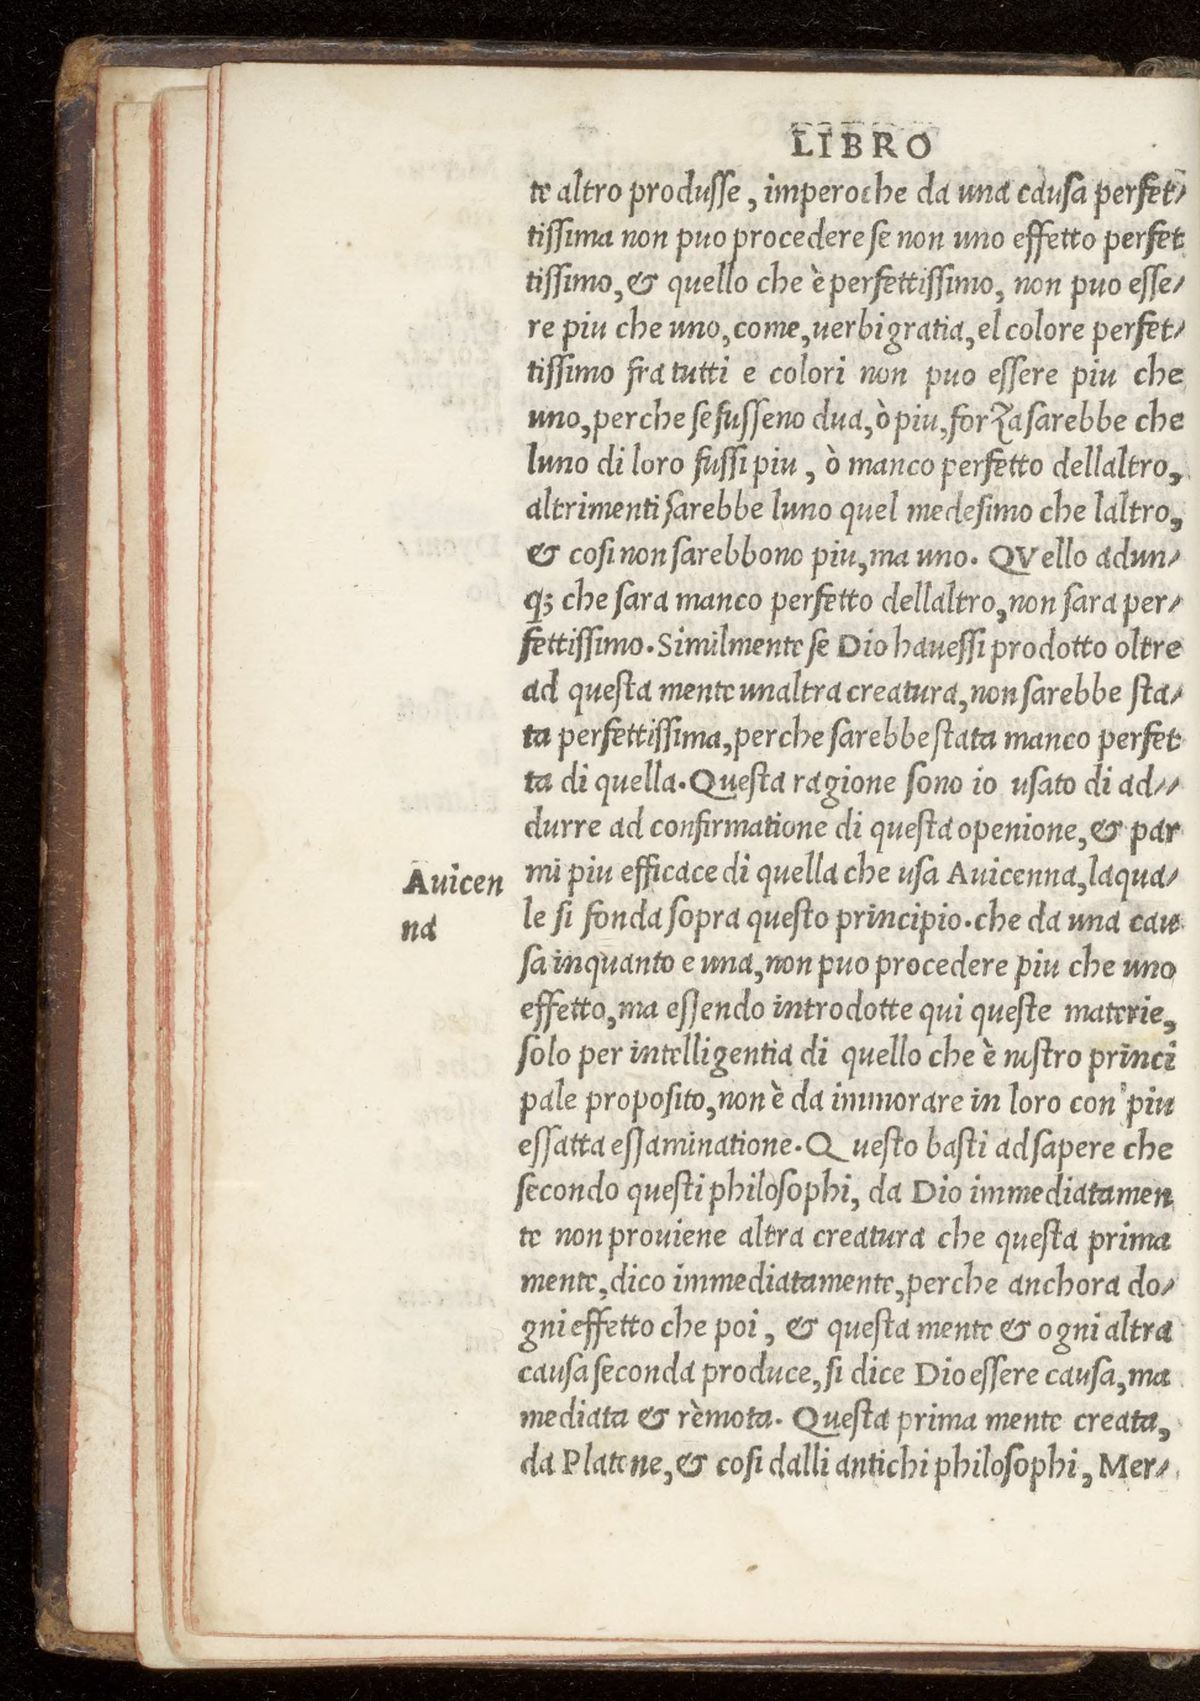 LIBRO
te altro produsse, imperoche da una causa perfet/
tissima non puo procedere se non uno effetto perfet
tissimo, & quello che è perfettissimo, non puo esse/
re piu che uno, come, uerbigratia, el colore perfet/
tissimo fra tutti e colori non puo essere piu che
uno, perche se fusseno dua, ò piu, forza sarebbe che
luno di loro fussi piu, ò manco perfetto dellaltro,
altrimenti sarebbe luno quel medesimo che laltro,
& cosi non sarebbono piu, ma uno. QVello adun/
q; che sara manco perfetto dellaltro, non sara per/
fettissimo. Similmente se Dio hauessi prodotto oltre
ad questa mente unaltra creatura, non sarebbe sta/
ta perfettissima, perche sarebbe stata manco perfet
ta di quella. Questa ragione sono io usato di ad//
durre ad confirmatione di questa openione, & par
mi piu efficace di quella che usa Auicenna, laqua/
Auicen
na
le si fonda sopra questo principio. che da una cau
sa inquanto e una, non puo procedere piu che uno
effetto, ma essendo introdotte qui queste materie,
solo per intelligentia di quello che è nostro princi
pale proposito, non è da immorare in loro con piu
essatta essaminatione. Questo basti ad sapere che
secondo questi philosophi, da Dio immediatamen
te non prouiene altra creatura che questa prima
mente, dico immediatamente, perche anchora do/
gni effetto che poi, & questa mente & ogni altra
causa seconda produce, si dice Dio essere causa, ma
mediata & rèmota. Questa prima mente creata,
da Platone, & cosi dalli antichi philosophi, Mer/